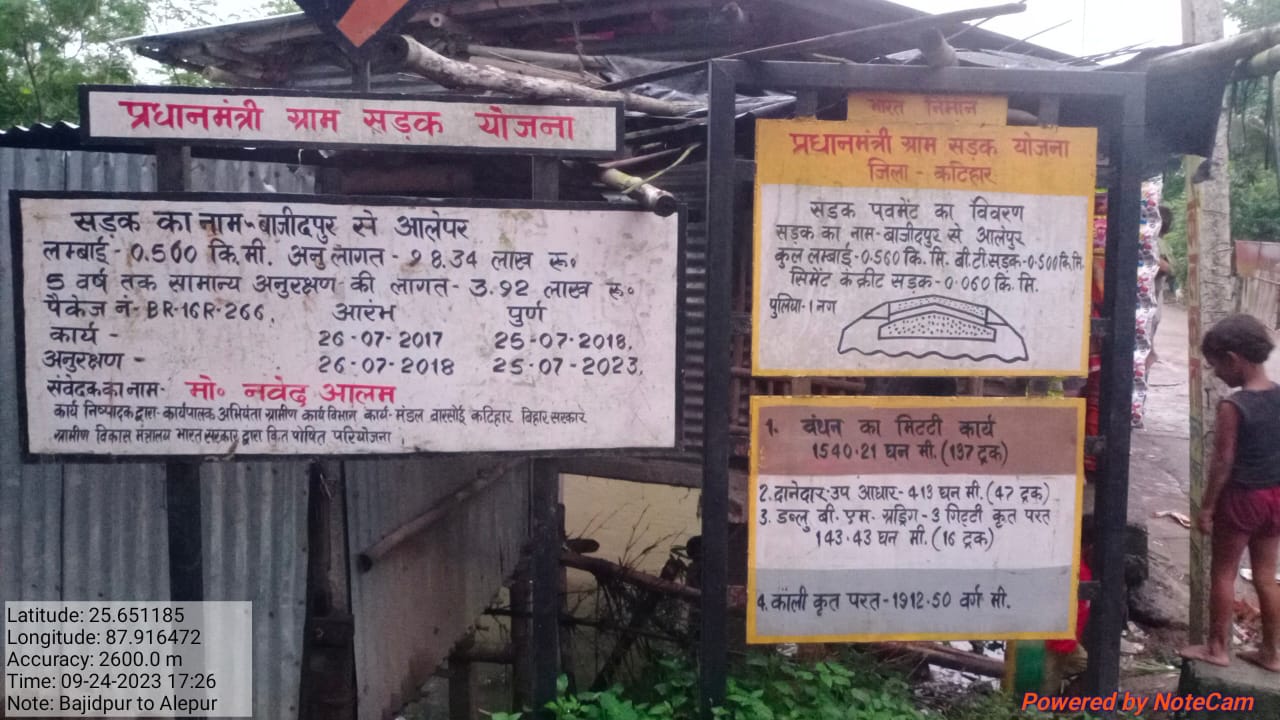 प्रधानमंत्री ग्राम सड़क योजना
सड़क का नाम-बाजीदपुर से आलेपर
लम्बाई- 0.500 कि.मी. अनु लागत- 18.34 लाख रू॰
5 वर्ष तक सामान्य अनुरक्षण की लागत- 3.92 लाख रू॰
पैकेज नं- BR-16R-266. आरंभ पुर्ण
कार्य - 26-07-2017 25-07-2018.
अनुरक्षण - 26-07-2018 25-07-2023.
संवेदक का नाम- मो॰ नवेद आलम
कार्य निष्पादक द्वारा-कार्यपालक अभियंता ग्रामीण कार्य विभाग कार्य- मंडल बारसोई कटिहार बिहार सरकार
ग्रामीण विकास मंत्रालय भारत सरकार द्वारा वित पोषित परियोजना।
भारत निर्मान
प्रधानमंत्री ग्राम सड़क योजना
जिला - कटिहार
सड़क पवमेंट का विवरण
सड़क का नाम-बाजीदपुर से आलेपुर
कुल लम्बाई-0.560 कि. मि. बी.टी.सड़क-0.500 कि.मि.
सिमेंट कंक्रीट सड़क-0.060 कि. मि.
पुलिया-1 नग
1. बंधन का मिटटी कार्य
1540.21 घन मी. (137 ट्रक)
2. दानेदार उप आधार- 413 घन मी. (47 ट्रक)
3. डब्लु बी. एम. ग्रड्रिग - 3 गिट्टी कृत परत
143.43 घन मी. (16 ट्रक)
4. काली कृत परत-1912.50 वर्ग मी.
Latitude: 25.651185
Longitude: 87.916472
Accuracy: 2600.0 m
Time: 09-24-2023 17:26
Note: Bajidpur to Alepur
Powered by NoteCam